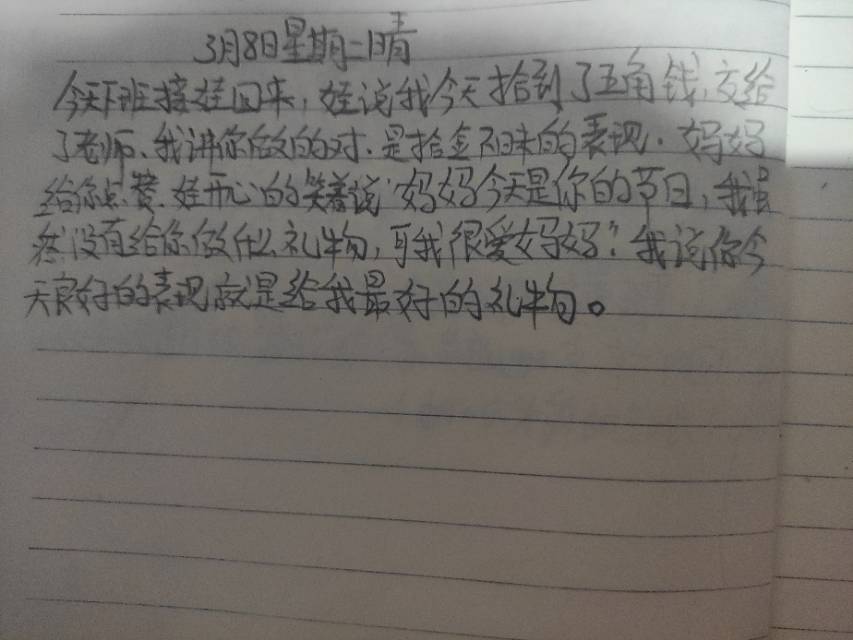 3月8日星期二晴
今天下班接娃回来，娃说我今天拾到了五角钱，交给
了老师、我讲你做的的对、是拾金不昧的表现．妈妈
给你点赞、娃开心的笑着说“妈妈今天是你的节日，我虽
然没有给你做什么礼物，可我很爱妈妈”．我说你今
天良好的表现就是给我最好的礼物。